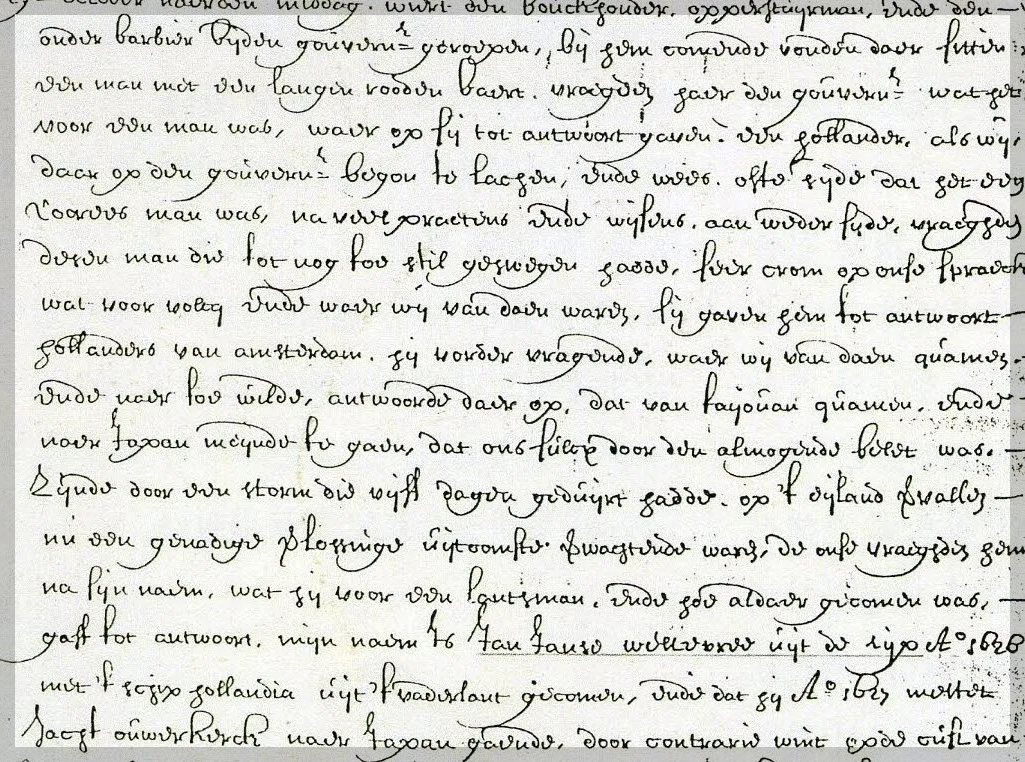 october naerden middag. wiert den bouckhouder. opperstuijrman, ende den
onder barbier bijden gouvernr geroepen, bij hem comende vonden daer sitten
een man met een langen rooden baert. vraegden haer den gouvernr wat het
voor een man was, waer op sij tot antwoort gaven. een hollander. als wij,
daer op den gouvernr begon te lachen, ende wees. ofte sijde dat het een
Coorees man was, na veel pratens ende wijsens. aan weder sijde, vraeghden
desen man die tot nog toe stil geswegen hadde, seer crom op onse spraeck
wat voor volcq ende waer wij van daen waren, sij gaven hem tot antwoort
hollanders van amsterdam. hij vorder vragende, waer wij van daen quamen
ende naer toe wilde, antwoorde daer op, dat van taijouan quamen. ende
naer Japan meijnde te gaen, dat ons sulcx door den almogende belet was.
Zijnde door een storm die vijff dagen geduijrt hadde. op 't eijland vervallen
nu een genadige verlossinge uijtcomste verwachtende waren, de onse vraeghden hem
na sijn naem, wat hij voor een lantsman. ende hoe aldaer gecomen was,
gaff tot antwoort. mijn naem Is Jan Janse weltevree uijt de rijp Ao 1626
met 't schip hollandia uijt 't vaderlant gecomen, ende dat hij Ao 1627 mettet
Jacht ouwerkerck naer Japan gaende, door contrarie wint op de cust van